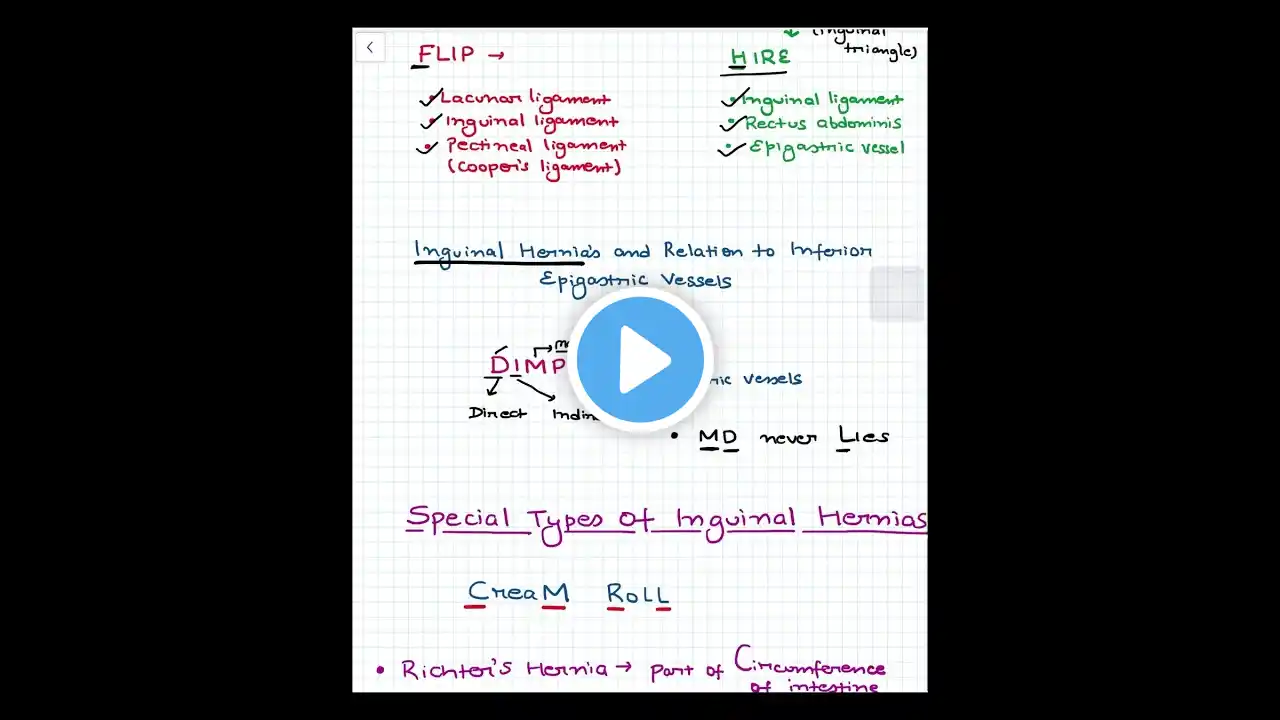 (Inguinal
triangle)
FLIP →
Lacunar ligament
Inguinal ligament
Pectineal ligament
(Cooper's ligament)
HIRE
Inguinal ligament
Rectus abdominis
Epigastric vessel
Inguinal Hernia's and Relation to Inferior
Epigastric Vessels
DIMP
vessels
Direct
• MD never Lies
Special Types Of Inguinal Hernias
CreaM RoLL
• Richter's Hernia → part of Circumference
of intestine